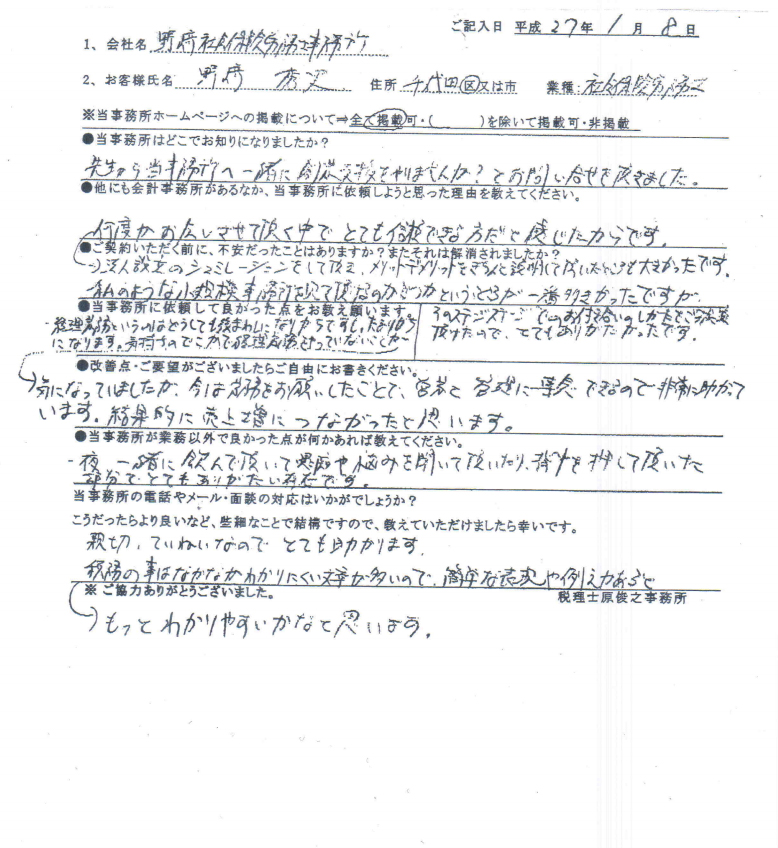 ご記入日 平成 27年 1月 8日
1、会社名 野崎社会保険労務士事務所
2、お客様氏名 野崎 住所 千代田区又は市 業種:社会保険労務士
※当事務所ホームページへの掲載について⇒全て掲載可・( )を除いて掲載可・非掲載
●当事務所はどこでお知りになりましたか?
先生から当事務所へ一緒に をやりませんか?とお問い合せを頂きました。
●他にも会計事務所があるなか、当事務所に依頼しようと思った理由を教えてください。
何度かお会いさせて頂く中でとても信頼できる方だと感じたからです。
●ご契約いただく前に、不安だったことはありますか?またそれは解消されましたか?
→法人設立のシュミレーションをして頂き、メリットデメリットをきちんと説明して頂いたところも大きかったです。
私のような小規模事務所を見て頂けるのかどうかというところが一番大きかったですが
そのステージステージでのお付き合いのしかたをご 頂けたので、とてもありがたかったです。
●当事務所に依頼して良かった点をお教え願います。
・経理業務というのはどうしても後まわしになりがちですし、たまりがちになります。 気持ちのどこかで経理 をやっていないことが
●改善点・ご要望がございましたらご自由にお書きください。
→気になっていましたが、今は業務をお願いしたことで、営業と管理に専念できるので非常に助かって
います。結果的に売上増につながったと思います。
●当事務所が業務以外で良かった点が何かあれば教えてください。
・夜一緒に飲んで頂いて や悩みを聞いて頂いたり、背中を押して頂いた
部分でとてもありがたい存在です。
当事務所の電話やメール・面談の対応はいかがでしょうか?
こうだったらより良いなど、些細なことで結構ですので、教えていただけましたら幸いです。
親切、ていねいなのでとても助かります。
税務の事はなかなかわかりにくい文章が多いので、簡単な表現や例えがあると
※ ご協力ありがとうございました。 税理士原俊之事務所
→もっとわかりやすいかなと思います。